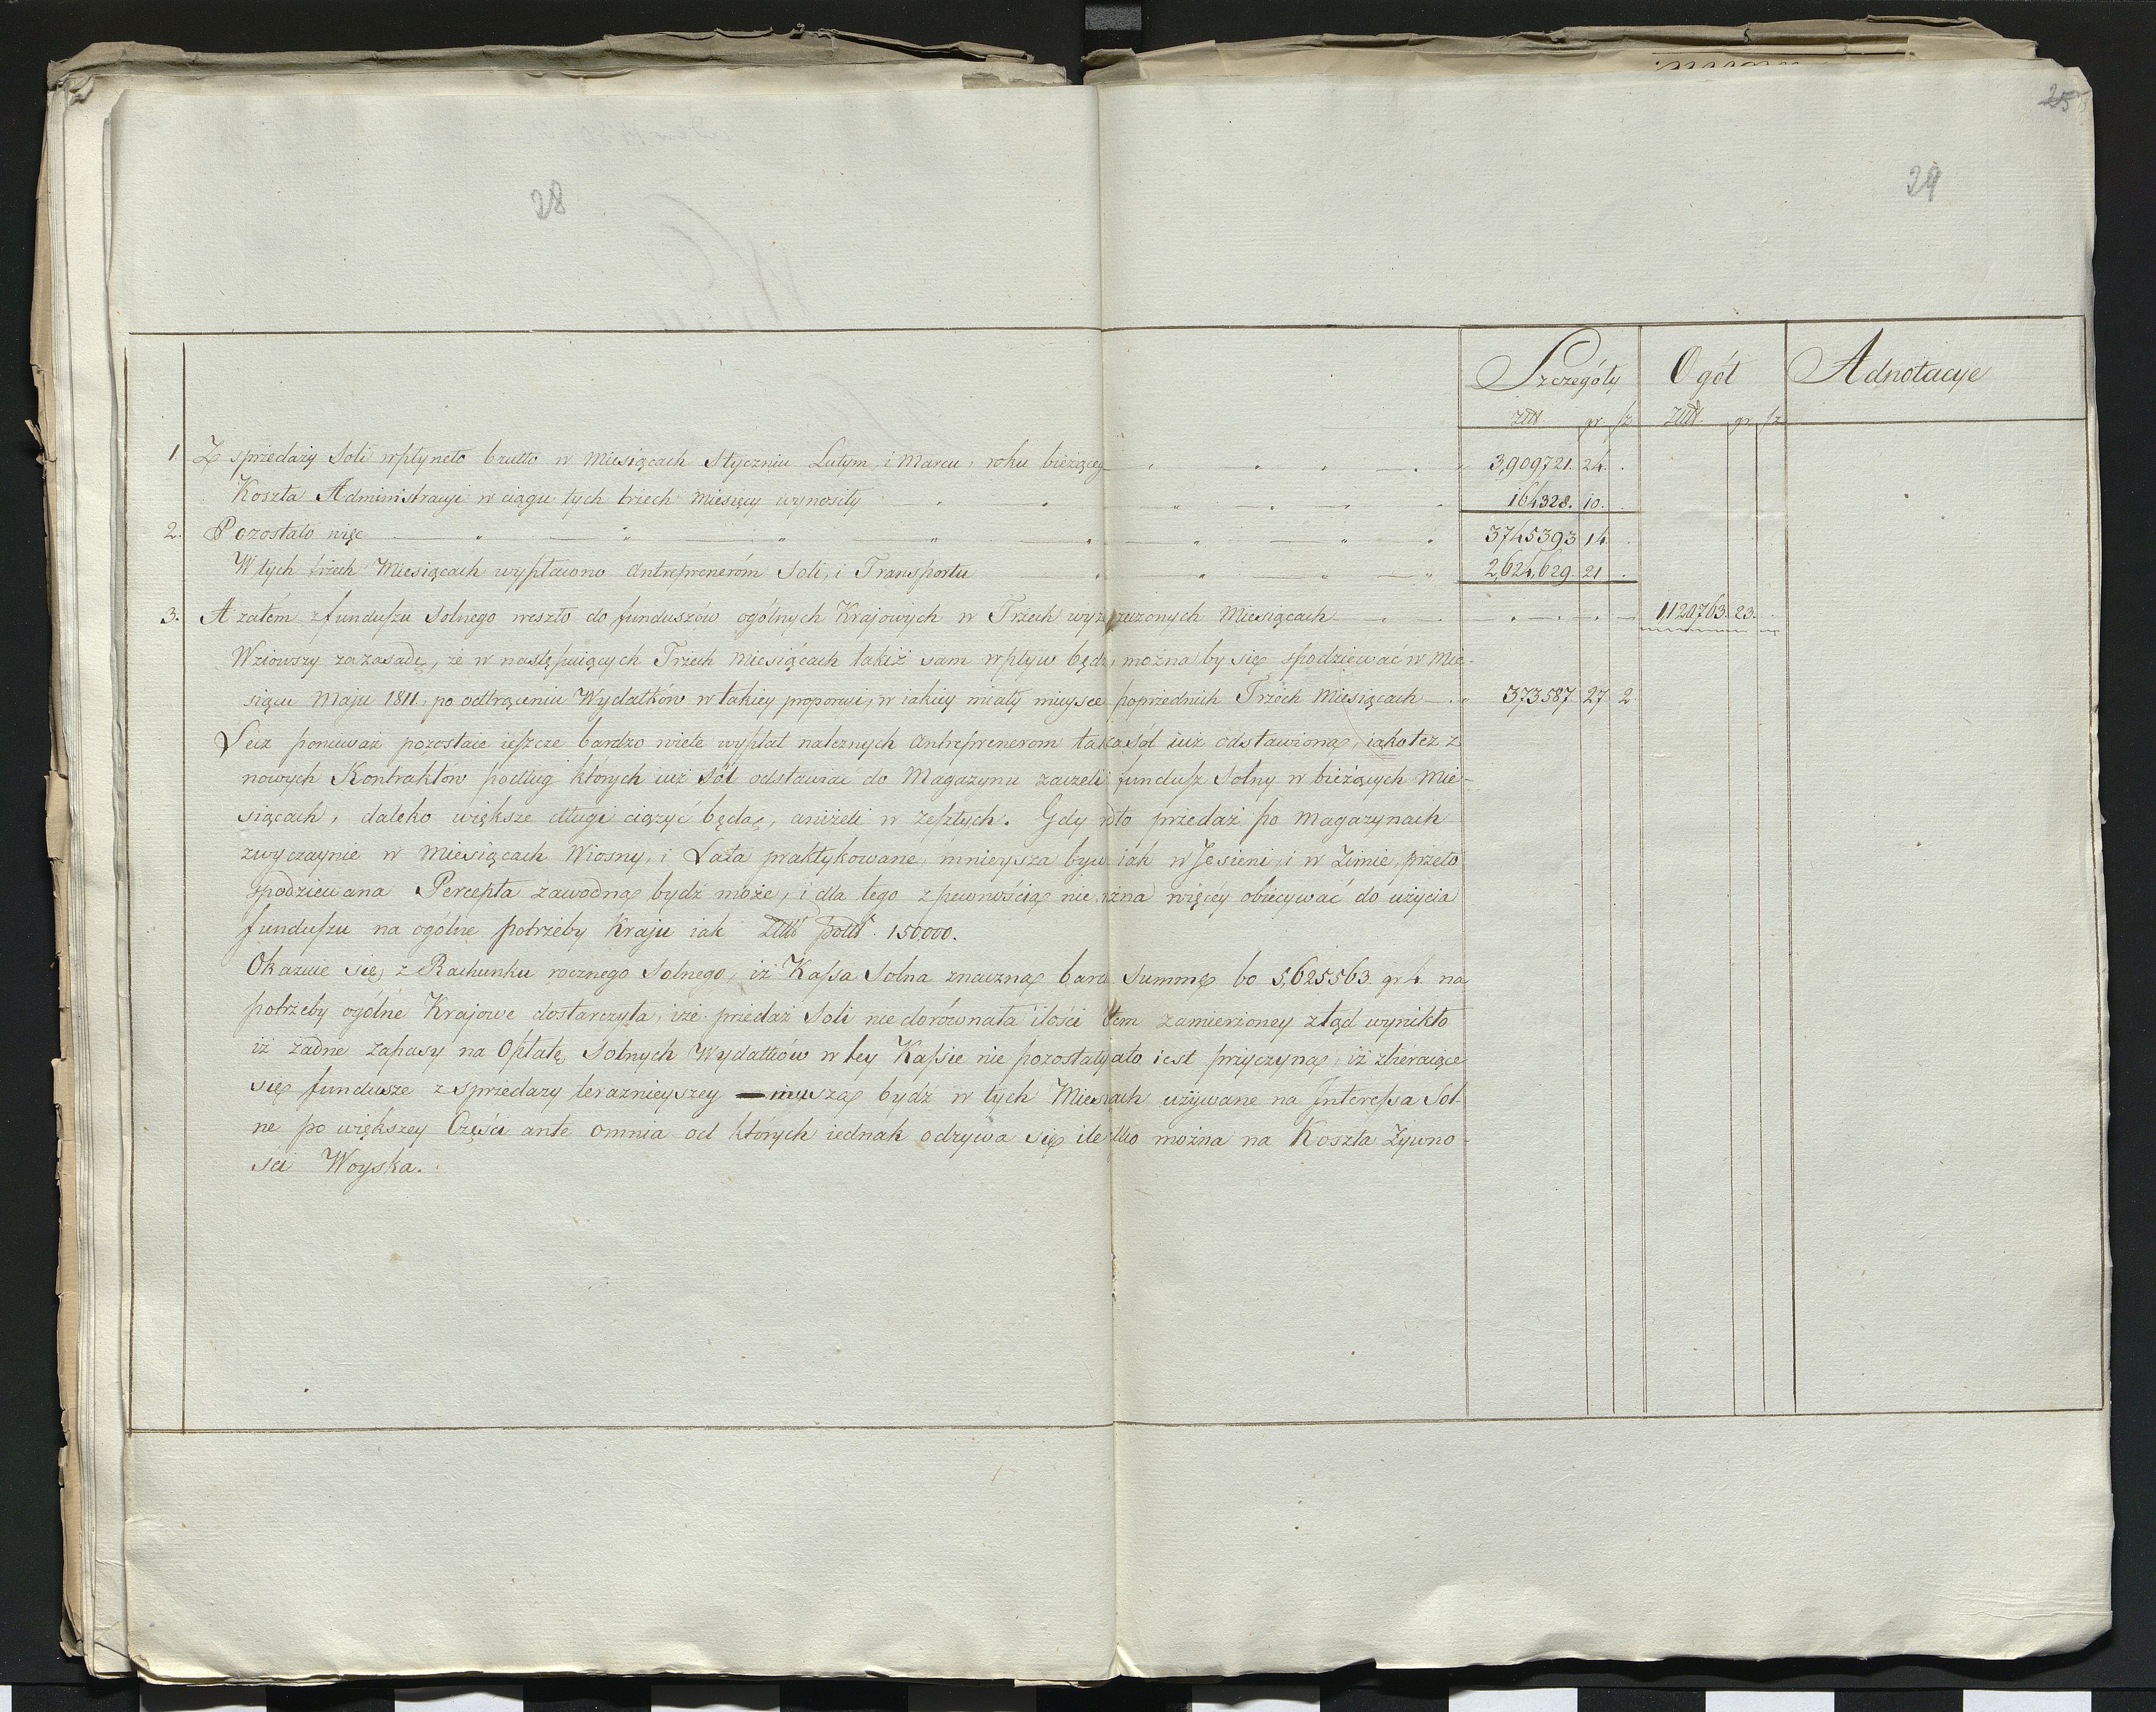 25
28
29
Szczegóły Ogół Adnotacye
Złł. gr. sz Złł. gr sz
1 Z sprzedaży Soli wpłyneło brutto w Miesiącach Styczniu Lutym, i Marcu, roku bieżącey 3,909721. 24.
Koszta Administracyi w ciągu tych trzech Miesięcy wynosiły 164328. 10.
2. Pozostało więc 3745393 14.
W tych trzech Miesiącach wypłacono Antrepreneróm Soli, i Transportu 2,624,629. 21
3. A zatém z funduszu Solnego weszło do funduszów ogólnych Krajowych w Trzech Miesiącach 1120763. 23.
Wziowszy za zasadę, że w następuiących Trzech Miesiącach takiż sam wpływ będ, można by się spodziewać w Mie-
siącu Maju 1811, po odtrąceniu Wydatków w takiey proporcyi, w iakiey miały mieysce poprzednich Trzech Miesiącach 373587. 27 2
Lecz ponieważ pozostaie ieszcze bardzo wiele wypłat należnych Antreprenerom tak sól iuż odstawioną, iako też z
nowych Kontraktów podług których iuż Sól odstawiać do Magazynu zaczeli fundusz Solny w bieżących Mie-
siącach, daleko większe długi ciążyć będą, aniżeli w zeszłych. Gdy przedaż po Magazynach
zwyczaynie w Miesiącach Wiosny, i Lata praktykowane, mnieysza byw iak w Jesieni, i w Zimie, przeto
spodziewana Percepta zawodną bydź może, i dla tego z pewnością nie żna więcéy obiecywać do użycia
funduszu na ogólne potrzeby Kraju iak Złł 150000.
Okazuie się, z Rachunku rocznego Solnego, iż Kassa Solna znaczną bard Summę bo 5,625563. gr 4. na
potrzeby ogólne Krajowe dostarczyła, iże przedaż Soli nie dorównała ilości zamierzoney ztąd wynikło
iż żadne zapasy na Opłatę Solnych Wydatków w tey Kassie nie pozostały ato iest przyczyną, iż zbieraiące
się fundusze z sprzedaży teraznieyszey muszą bydź w tych Miesiach używane na Interessa Sol-
ne po większey Części ante omnia od których iednak odrywa się ile lko można na Koszta Żywno-
sci Woyska.